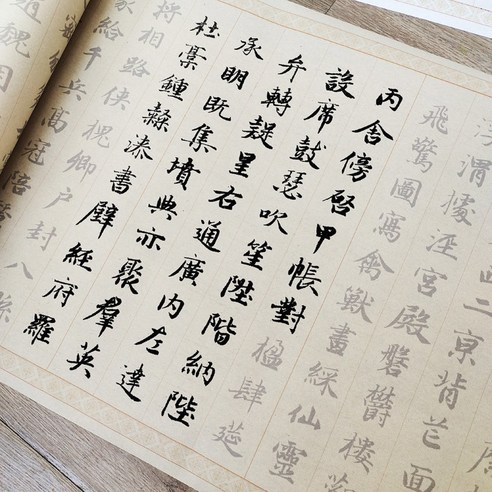 二京背芒面
浮渭據涇宮殿磐欝樓
飛驚圖寫禽獸畫綵仙靈
丙舍傍啓甲帳對楹肆筵
設席鼓瑟吹笙陞階納陛
弁轉疑星右通廣內左達
承明既集墳典亦聚羣英
杜稾鍾隸漆書壁經府羅
將相路俠槐卿戶封八縣
家給千兵高冠陪
魏困